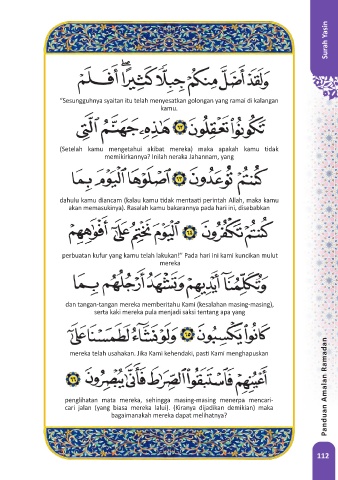 Surah Yasin
وَلَقَدْ أَضَلَّ مِنكُمْ جِبِلًّا كَثِيرًا ۖ أَفَلَمْ
"Sesungguhnya syaitan itu telah menyesatkan golongan yang ramai di kalangan
kamu.
تَكُونُوا۟ تَعْقِلُونَ ٦٢ هَٰذِهِۦ جَهَنَّمُ ٱلَّتِى
(Setelah kamu mengetahui akibat mereka) maka apakah kamu tidak
memikirkannya? Inilah neraka Jahannam, yang
كُنتُمْ تُوعَدُونَ ٦٣ ٱصْلَوْهَا ٱلْيَوْمَ بِمَا
dahulu kamu diancam (kalau kamu tidak mentaati perintah Allah, maka kamu
akan memasukinya). Rasalah kamu bakarannya pada hari ini, disebabkan
كُنتُمْ تَكْفُرُونَ ٦٤ ٱلْيَوْمَ نَخْتِمُ عَلَىٰٓ أَفْوَٰهِهِمْ
perbuatan kufur yang kamu telah lakukan!" Pada hari ini kami kuncikan mulut
mereka
وَتُكَلِّمُنَآ أَيْدِيهِمْ وَتَشْهَدُ أَرْجُلُهُم بِمَا
dan tangan-tangan mereka memberitahu Kami (kesalahan masing-masing),
serta kaki mereka pula menjadi saksi tentang apa yang
كَانُوا۟ يَكْسِبُونَ ٦٥ وَلَوْ نَشَآءُ لَطَمَسْنَا عَلَىٰٓ
mereka telah usahakan. Jika Kami kehendaki, pasti Kami menghapuskan
أَعْيُنِهِمْ فَٱسْتَبَقُوا۟ ٱلصِّرَٰطَ فَأَنَّىٰ يُبْصِرُونَ ٦٦
penglihatan mata mereka, sehingga masing-masing menerpa mencari-
cari jalan (yang biasa mereka lalui). (Kiranya dijadikan demikian) maka
bagaimanakah mereka dapat melihatnya?
Panduan Amalan Ramadan
112